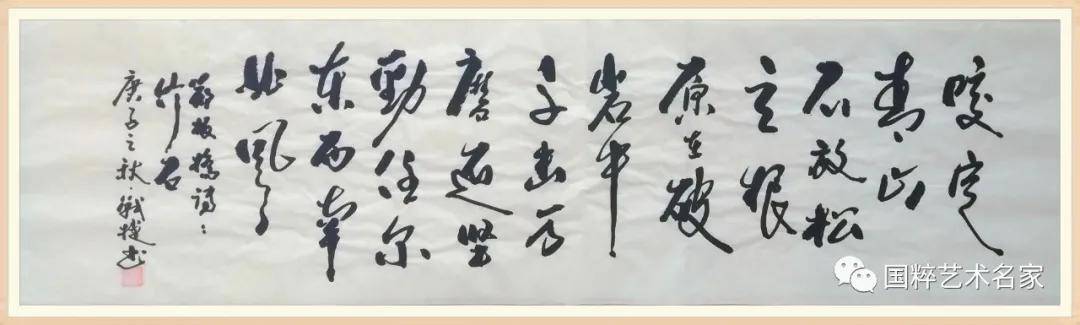 咬定
青山
不放松
立根
原在破
岩中
千击万
磨还坚
勁任尔
东西南
北风
鄭板橋詩：
竹石
庚子之秋·书
国粹艺术名家